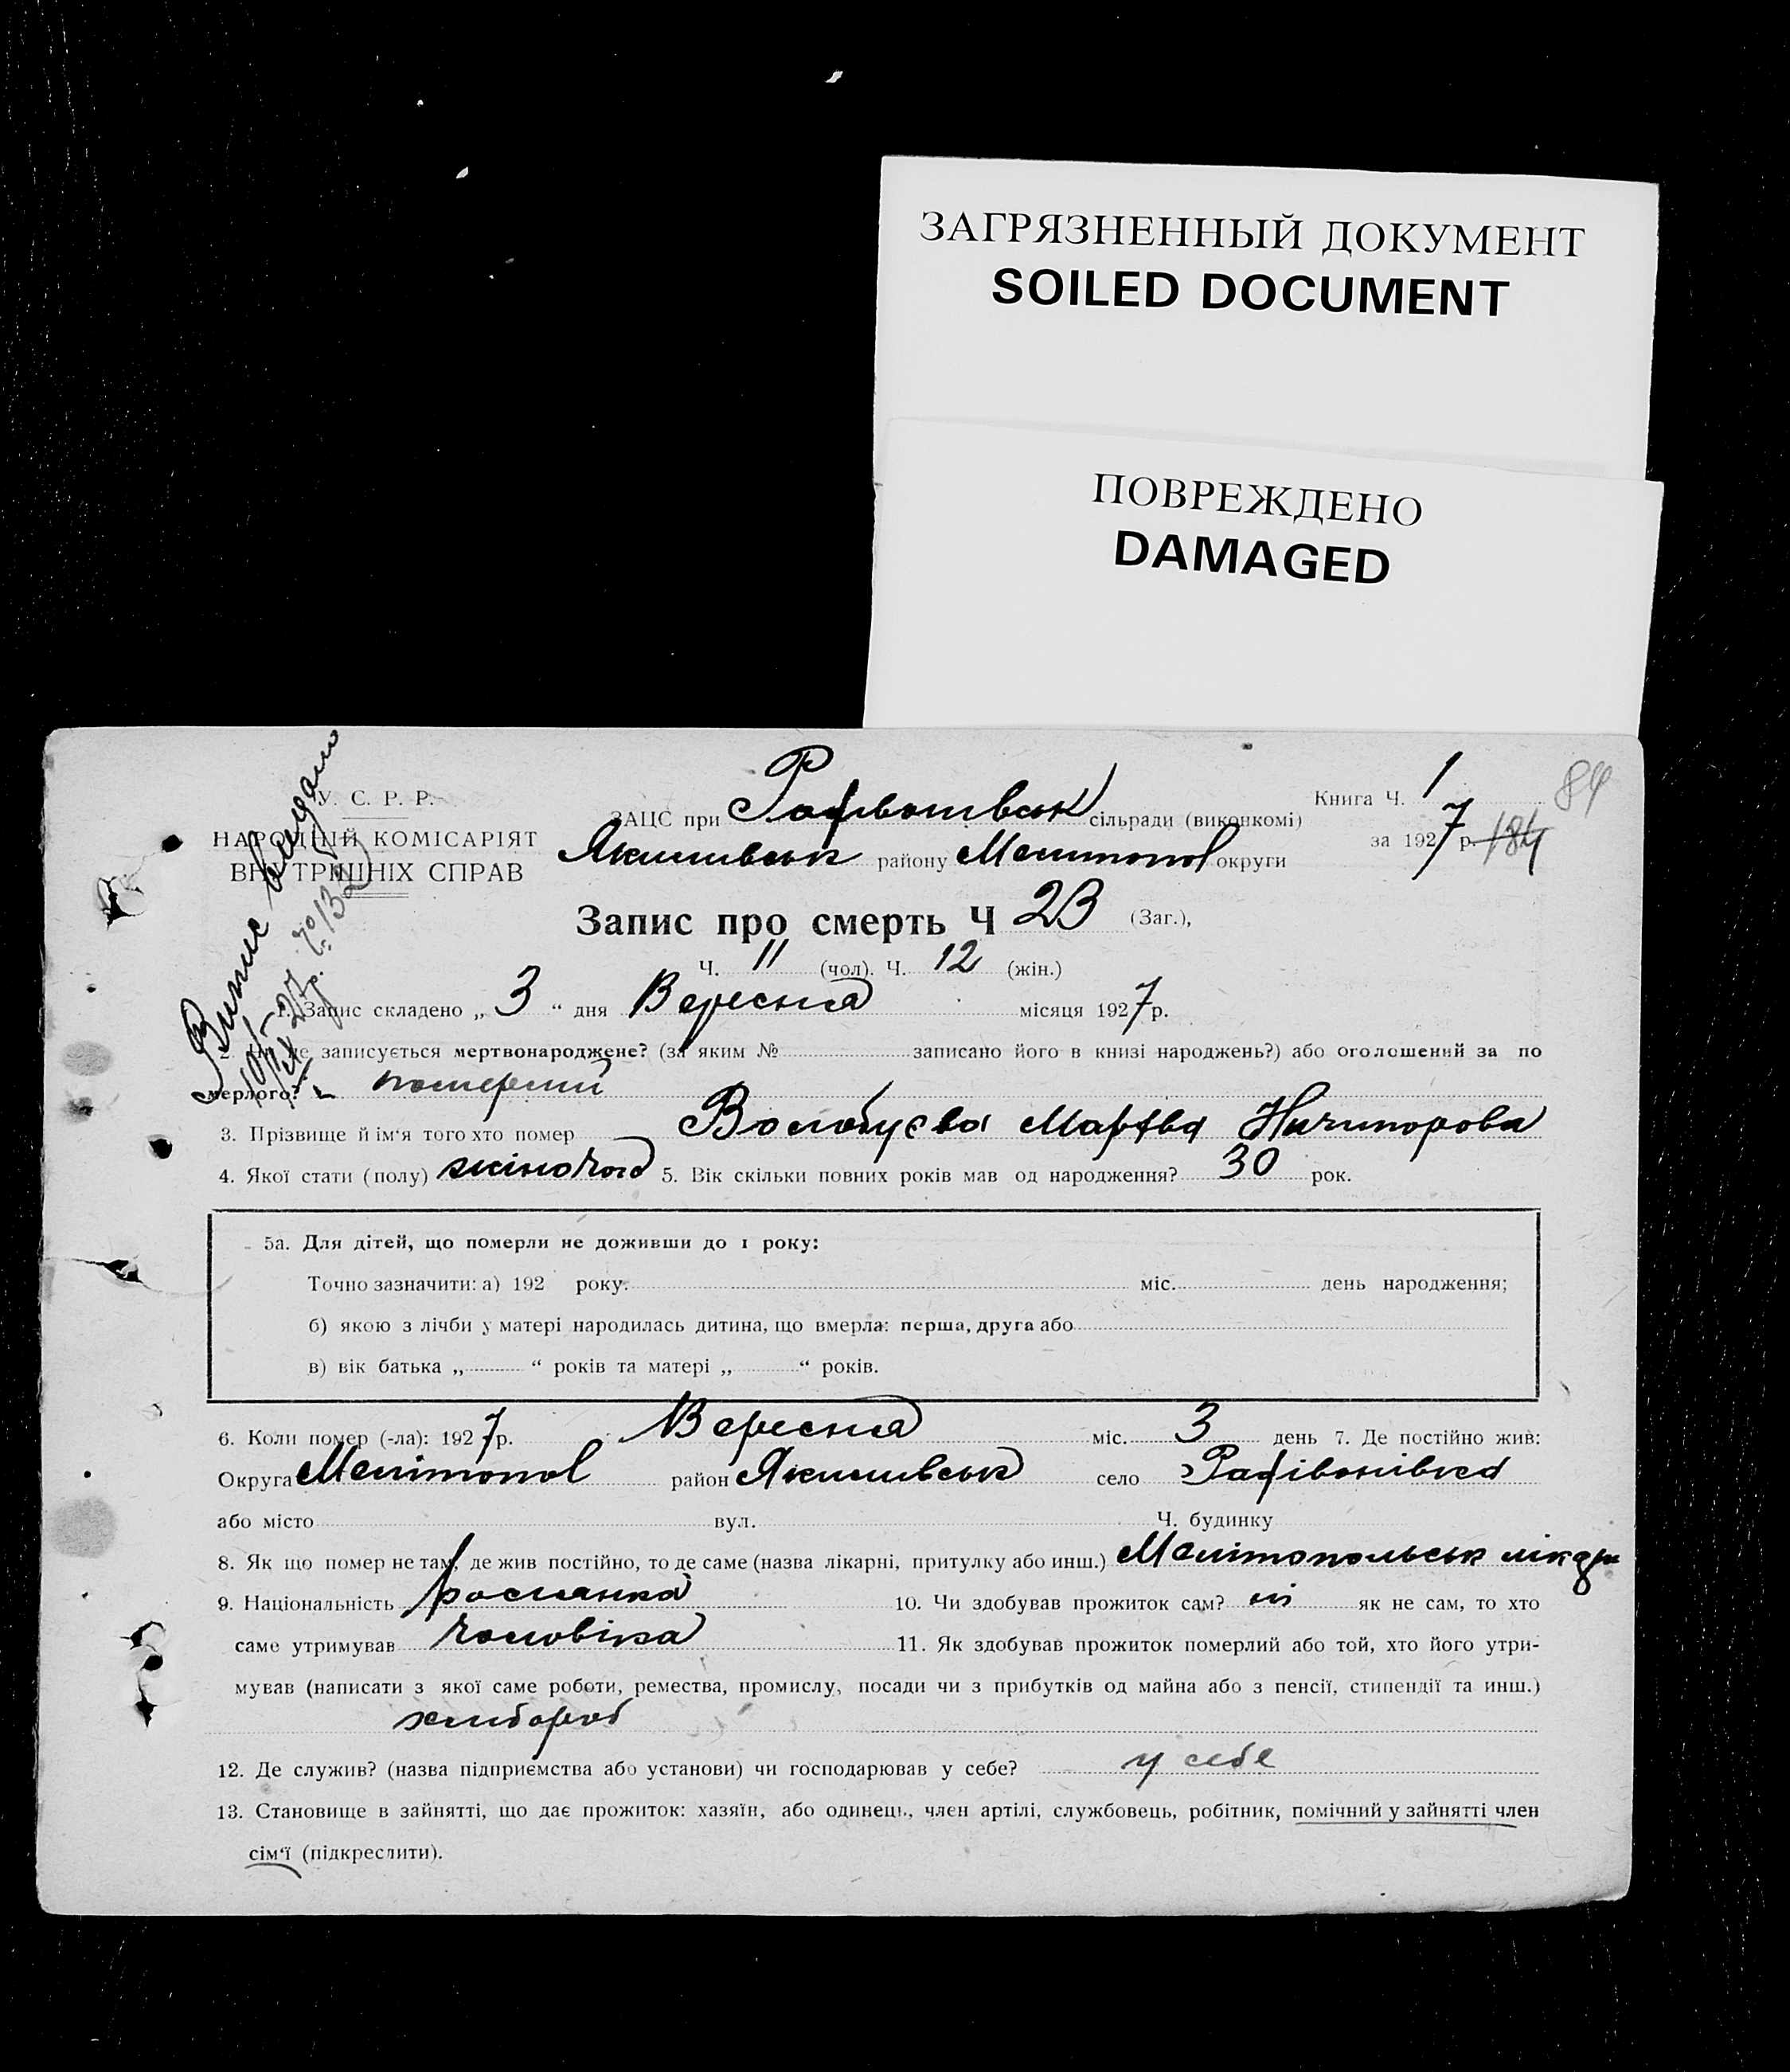 ЗАГРЯЗНЕННЫЙ ДОКУМЕНТ
SOILED DOCUMENT
ПОВРЕЖДЕНО
DAMAGED
Випис видано
10/IX-27 р. № 132
84
У. С. Р. Р.
НАРОДНІЙ КОМІСАРІЯТ
ВНУТРІШНІХ СПРАВ
Книга Ч. 1
ЗАЦС при сільради (виконкомі)
за 1927 р. 184
Якимівськ району Мелитопол округи
Запис про смерть Ч 23 (Заг.),
Ч. 11 (чол). Ч. 12 (жін.)
1. Запис складено „ 3 “ дня Вересня місяця 1927 р.
не записується мертвонароджене? (за яким № записано його в книзі народжень?) або оголошений за по
мерлого? померший
3. Прізвище й ім'я того хто помер Волобуєва Марфва Ничипорова
4. Якої стати (полу) жіночого 5. Вік скільки повних років мав од народження? 30 рок.
5а. Для дітей, що померли не доживши до 1 року:
Точно зазначити: а) 192 року. міс. день народження;
б) якою з лічби у матері народилась дитина, що вмерла: перша, друга або
в) вік батька „ “ років та матері „ “ років.
6. Коли помер (-ла): 1927 р. Вересня міс. 3 день 7. Де постійно жив:
Округа Мелітопол район Якимівськ село Радівонівка
або місто вул. Ч. будинку
8. Як що помер не там, де жив постійно, то де саме (назва лікарні, притулку або инш.) Мелітопольськ лікарн
9. Національність росіянка 10. Чи здобував прожиток сам? ні як не сам, то хто
саме утримував чоловіка 11. Як здобував прожиток померлий або той, хто його утри-
мував (написати з якої саме роботи, ремества, промислу, посади чи з прибутків од майна або з пенсії, стипендії та инш.)
хлибороб
12. Де служив? (назва підприємства або установи) чи господарював у себе? у себе
13. Становище в зайнятті, що дає прожиток: хазяїн, або одинець, член артілі, службовець, робітник, помічний у зайнятті член
сім'ї (підкреслити).